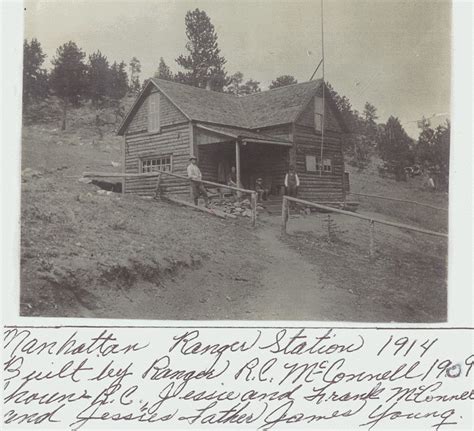 Manhattan Ranger Station 1914
Built by Ranger R.C. McConnell 1909
R.C. Jessie and Frank McConnell
and Jessies Father James Young.